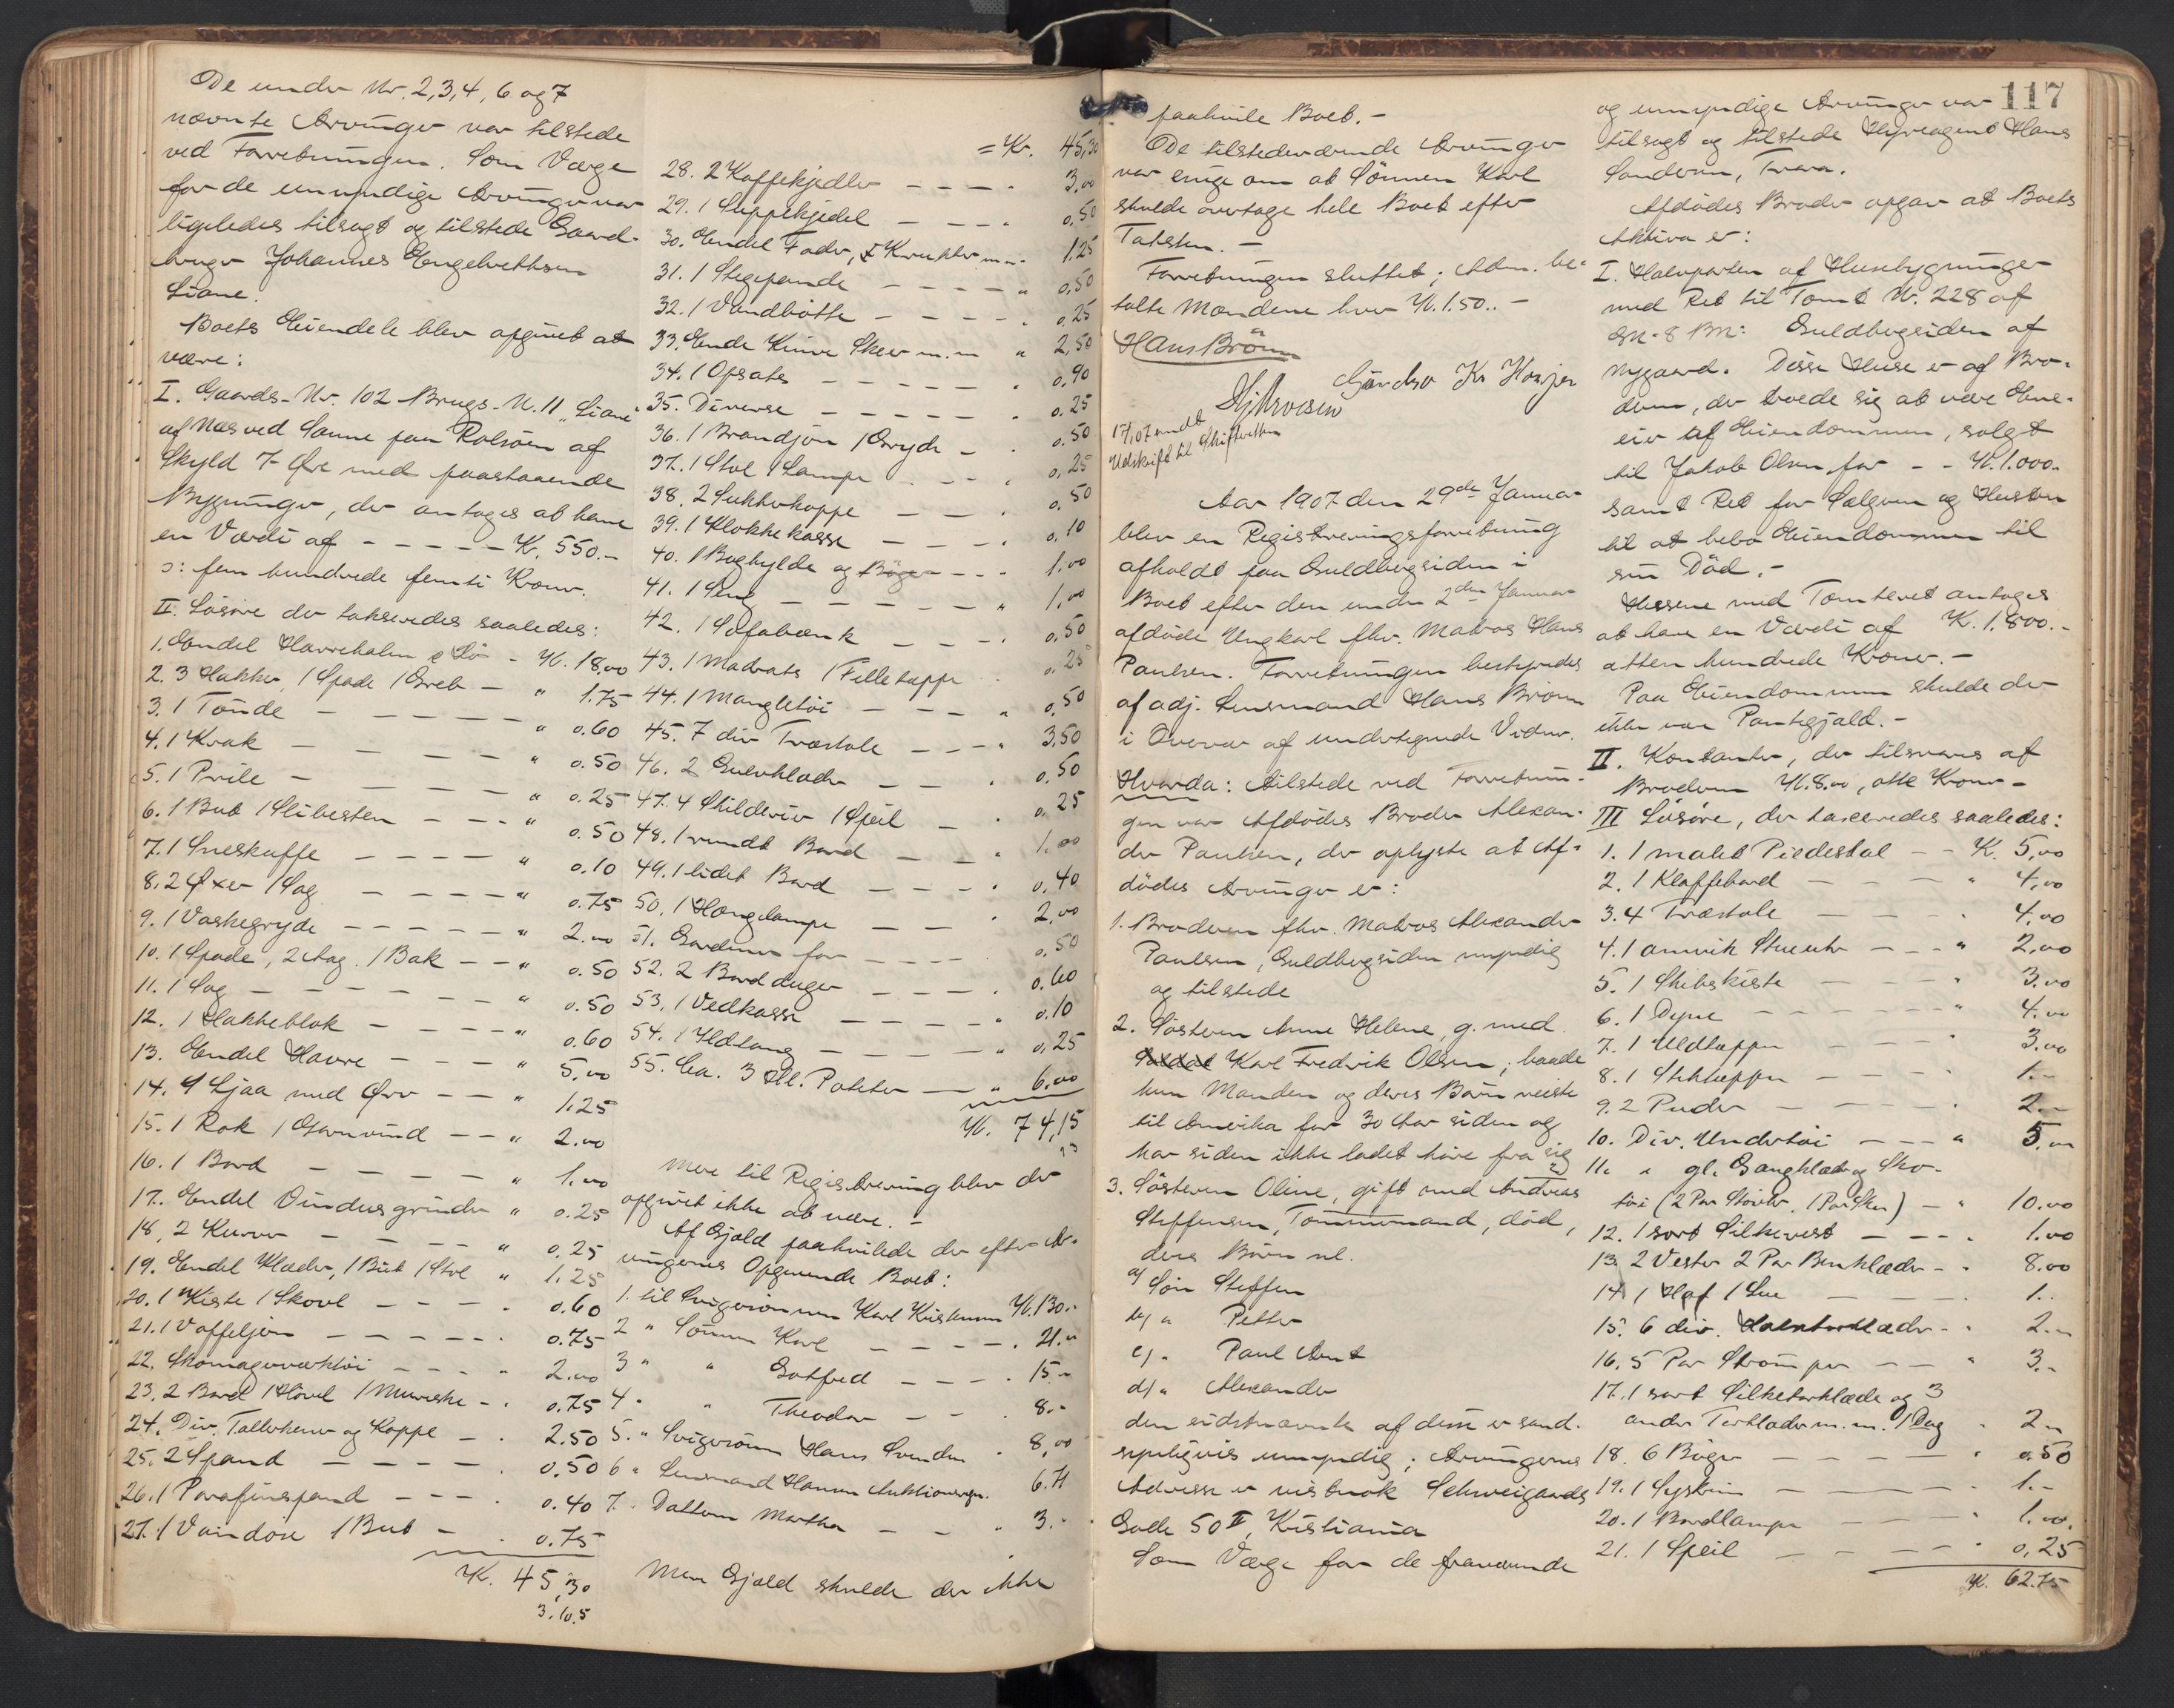 De under Nr. 2, 3, 4, 6 og 7
nævnte Arvinger var tilstede
ved Forretningen. Som Værge
for de umyndige Arvinger var
ligeledes tilsagt og tilstede Gaard-
bruger Johannes Engelbrethsen
Liane.
Boets Eiendele blev opgivet at
være:
I. Gaards-Nr. 102 Brugs-N. 11 "Liane"
af Næs ved Sanne paa Rolsøen af
Skyld 7 Øre med paastaaende
Bygninger, der antages at have
en Værdi af - - - - - Kr. 550.-
ɔ: fem hundrede femti Kroner.
II. Løsøre der takseredes saaledes:
1. Endel Havrehalm - Kr. 18.00
2. 3 Hakker, 1 Spade 1 Greb - " 1.75
3. 1 Tønde - - - - " 0.60
4. 1 Krak - - - " 0.50
5. 1 Prile - - - - " 0.25
6. 1 But 1 Slibesten - - - " 0.50
7. 1 Sneskuffe - - - - " 0.10
8. 2 Øxer 1 Sag - - - - " 0.75
9. 1 Vaskegryde - - - - - " 2.00
10. 1 Spade, 2 Aag. 1 Bak - - " 0.50
11. 1 Sag - - - - - - " 0.50
12. 1 Hakkeblok - - - - " 0.60
13. Endel Havre - - - " 5.00
14. 1 Ljaa med Orv - - " 1.25
15. 1 Rok 1 Garnvind - - " 2.00
16. 1 Bord - - - - - " 1.00
17. Endel Vindusgrinder " 0.25
18. 2 Kurver - - - - " 0.25
19. Endel Klæder, 1 But 1 Stol " 1.25
20. 1 Kiste 1 Skovl - - - . 0.60
21. 1 Vaffeljern - - - - - . 0.75
22. Skomagerverktøi - - - " 2.00
23. 2 Bord 1 Høvel 1 Murske - . 0.75
24. Div. Tallerkener og Koppe - . 2.50
25. 2 Spand - - - - . 0.50
26. 1 Parafinspand - - - . 0.40
27. 1 1 But - . 0.75
Kr. 45,30
3,10.5
= Kr. 45,30
28. 2 Kaffekjedler - - - . 3,00
29. 1 Suppekjedel - - - . 0.50
30. Endel Fader, Krukker m.m. 1.25
31. 1 Stegepande - - - - " 0,50
32. 1 Vandbøtte - - - . 0.25
33. Ende Knive Skeer m.m " 2,50
34. 1 Opsats - - - - - . 0.90
35. Diverse - - - - - . 0.25
36. 1 Brandjern 1 Gryde - . 0.50
37. 1 Stol 1 Lampe - - - . 0,25
38. 2 Sukkerkoppe - - . 0.50
39. 1 Klokkekasse - - - . 0.10
40. 1 Boghylde og Bøger - - - 1.00
41. 1 Seng - - - - - " 1,00
42. 1 Sofabænk - - - . 0.50
43. 1 Madrats 1 Filletæppe . 0.25
44. 1 Mangletøi - - - " 0,50
45. 7 div Træstole - - - " 3.50
46. 2 Gulvklæder - - . 0.50
47. 4 Skilderier 1 Speil - . 0.25
48. 1 rundt Bord - - - " 1.00
49. 1 lidet Bord - - - . 0.40
50. 1 Hængelampe - - . 2.00
51. Gardiner for - - - - . 0.50
52. 2 Bordduger - - - . 0.60
53. 1 Vedkasse - - - - " 0.10
54. 1 Ildtang - - - - " 0,25
55. Ca. 3 Hl. Poteter - " 6.00
Kr. 74,15
Mere til Registrering blev der
opgivet ikke at være. -
Af Gjæld paahvilede der efter Ar-
vingernes Opgivende Boet:
1. til Svigersønnen Karl Kristensen Kr. 130.-
2 " Sønnen Karl - - - - . 21.-
3 " " Gotfred - - - . 15.-
4 . " Theodor - - . 8.-
5. " Svigersønn Hans Svendsen . 8.00
6 . Lensmand Hansen Auktionsregn. 6.71
7. . Datteren Martha - - . 3.-
Mere Gjæld skulde der ikke
paahvile Boet. -
De tilstedeværende Arvinger
var enige om at Sønnen Karl
skulde overtage hele Boet efter
Taksten. -
Forretningen sluttet; Adm. be-
talte Mændene hver Kr. 1.50.. -
Hans Brönn
Gjæver Kr Hauger
Hj Arvesen
17/1 07 sendt
Udskrift til Skifteretten
Aar 1907 den 29de Januar
blev en Registreringsforretning
afholdt paa Guldbergsiden i
Boet efter den under 2den Januar
afdøde Ungkarl fhv. Matros Hans
Paulsen. Forretningen bestyredes
af adj. Lensmand Hans Brönn
i Overvær af undertegnede Vidner.
Hvorda: tilstede ved Forretnin-
gen var Afdødes Broder Alexan-
der Paulsen, der oplyste at Af-
dødes Arvinger er:
1. Broderen fhv. Matros Alexander
Paulsen, Guldbergsiden myndig
og tilstede
2. Søsteren Anne Helene, g. med
Karl Fredrik Olsen, baade
hun Manden og deres Børn reiste
til Amerika for 30 Aar siden og
har siden ikke ladet høre fra sig
3. Søsteren Oline, gift med Andreas
Steffensen, Tømmermand, død,
deres Børn nl.
a) Søn Steffen
b) " Petter
c) . Paul Arnt
d) " Alexander
den sidstnævnte af disse er sand-
synligvis umyndig; Arvingernes
Adresse er nestnok Schweigaards
Gade 50 II, Kristiania
Som Værge for de fraværende
117
og umyndige Arvinger var
tilsagt og tilstede Hyreagent Hans
Sandersen, Tvera.
Afdødes Broder opgav at Boets
Aktiva er:
I. Halvparten af Husebygninger
med Ret til Tomt Nr. 228 af
Gn. 8 Bn: Guldbergsiden af
Nygaard. Disse Huse er af Bro-
deren, der troede sig at være Ene-
eier af Eiendommen, solgt
til Jakob Olsen for - - Kr. 1.000.-
samt Ret for Sælgeren og Hustru
til at bebo Eiendommen til
sin Död. -
Husene med Tomteret antages
at have en Værdi af Kr. 1.800.-
atten hundrede Kroner. -
Paa Eiendommen skulde der
ikke være Pantegjæld. -
II. Kontanter, der tilsvares af
Broderen Kr. 8.00, otte Kroner -
III Løsøre, der taxeredes saaledes:
1. 1 malet Piedestal - - Kr. 5,00
2. 1 Klaffebord - - - - " 4,00
3. 4 Træstole - - - . 4,00
4. 1 amerik Stueuhr - - - " 2,00
5. 1 Skibskiste - - - - " 3.00
6. 1 Dyne - - - - - - " 4.00
7. 1 Uldtæppe - - - - . 3.00
8. 1 Stiktæppe - - - - 1.-
9. 2 Puder - - - - - . 2.-
10. Div. Undertøi - - - " 5.00
11. " gl. Gangklæder og Sko-
tøi (2 Par Støvler, 1 Par Sko) - " 10.00
12. 1 sort Silkevest - - - . 1.00
13. 2 Vester 2 Par Benklæder - . 8.00
14. 1 1 - - - - . 1.-
15. 6 div. - . 2.-
16. 5 Par Strømper - - " 3.-
17. 1 sort Silketørklæde og 3
andre Tørklæder m.m. . 2.-
18. 6 Bøger - - - - - . 0.50
19. 1 Syskrin - - - - - . 1.-
20. 1 Bordlampe - - - - " 1.00.
21. 1 Speil - - - - - . 0,25
Kr. 62.75